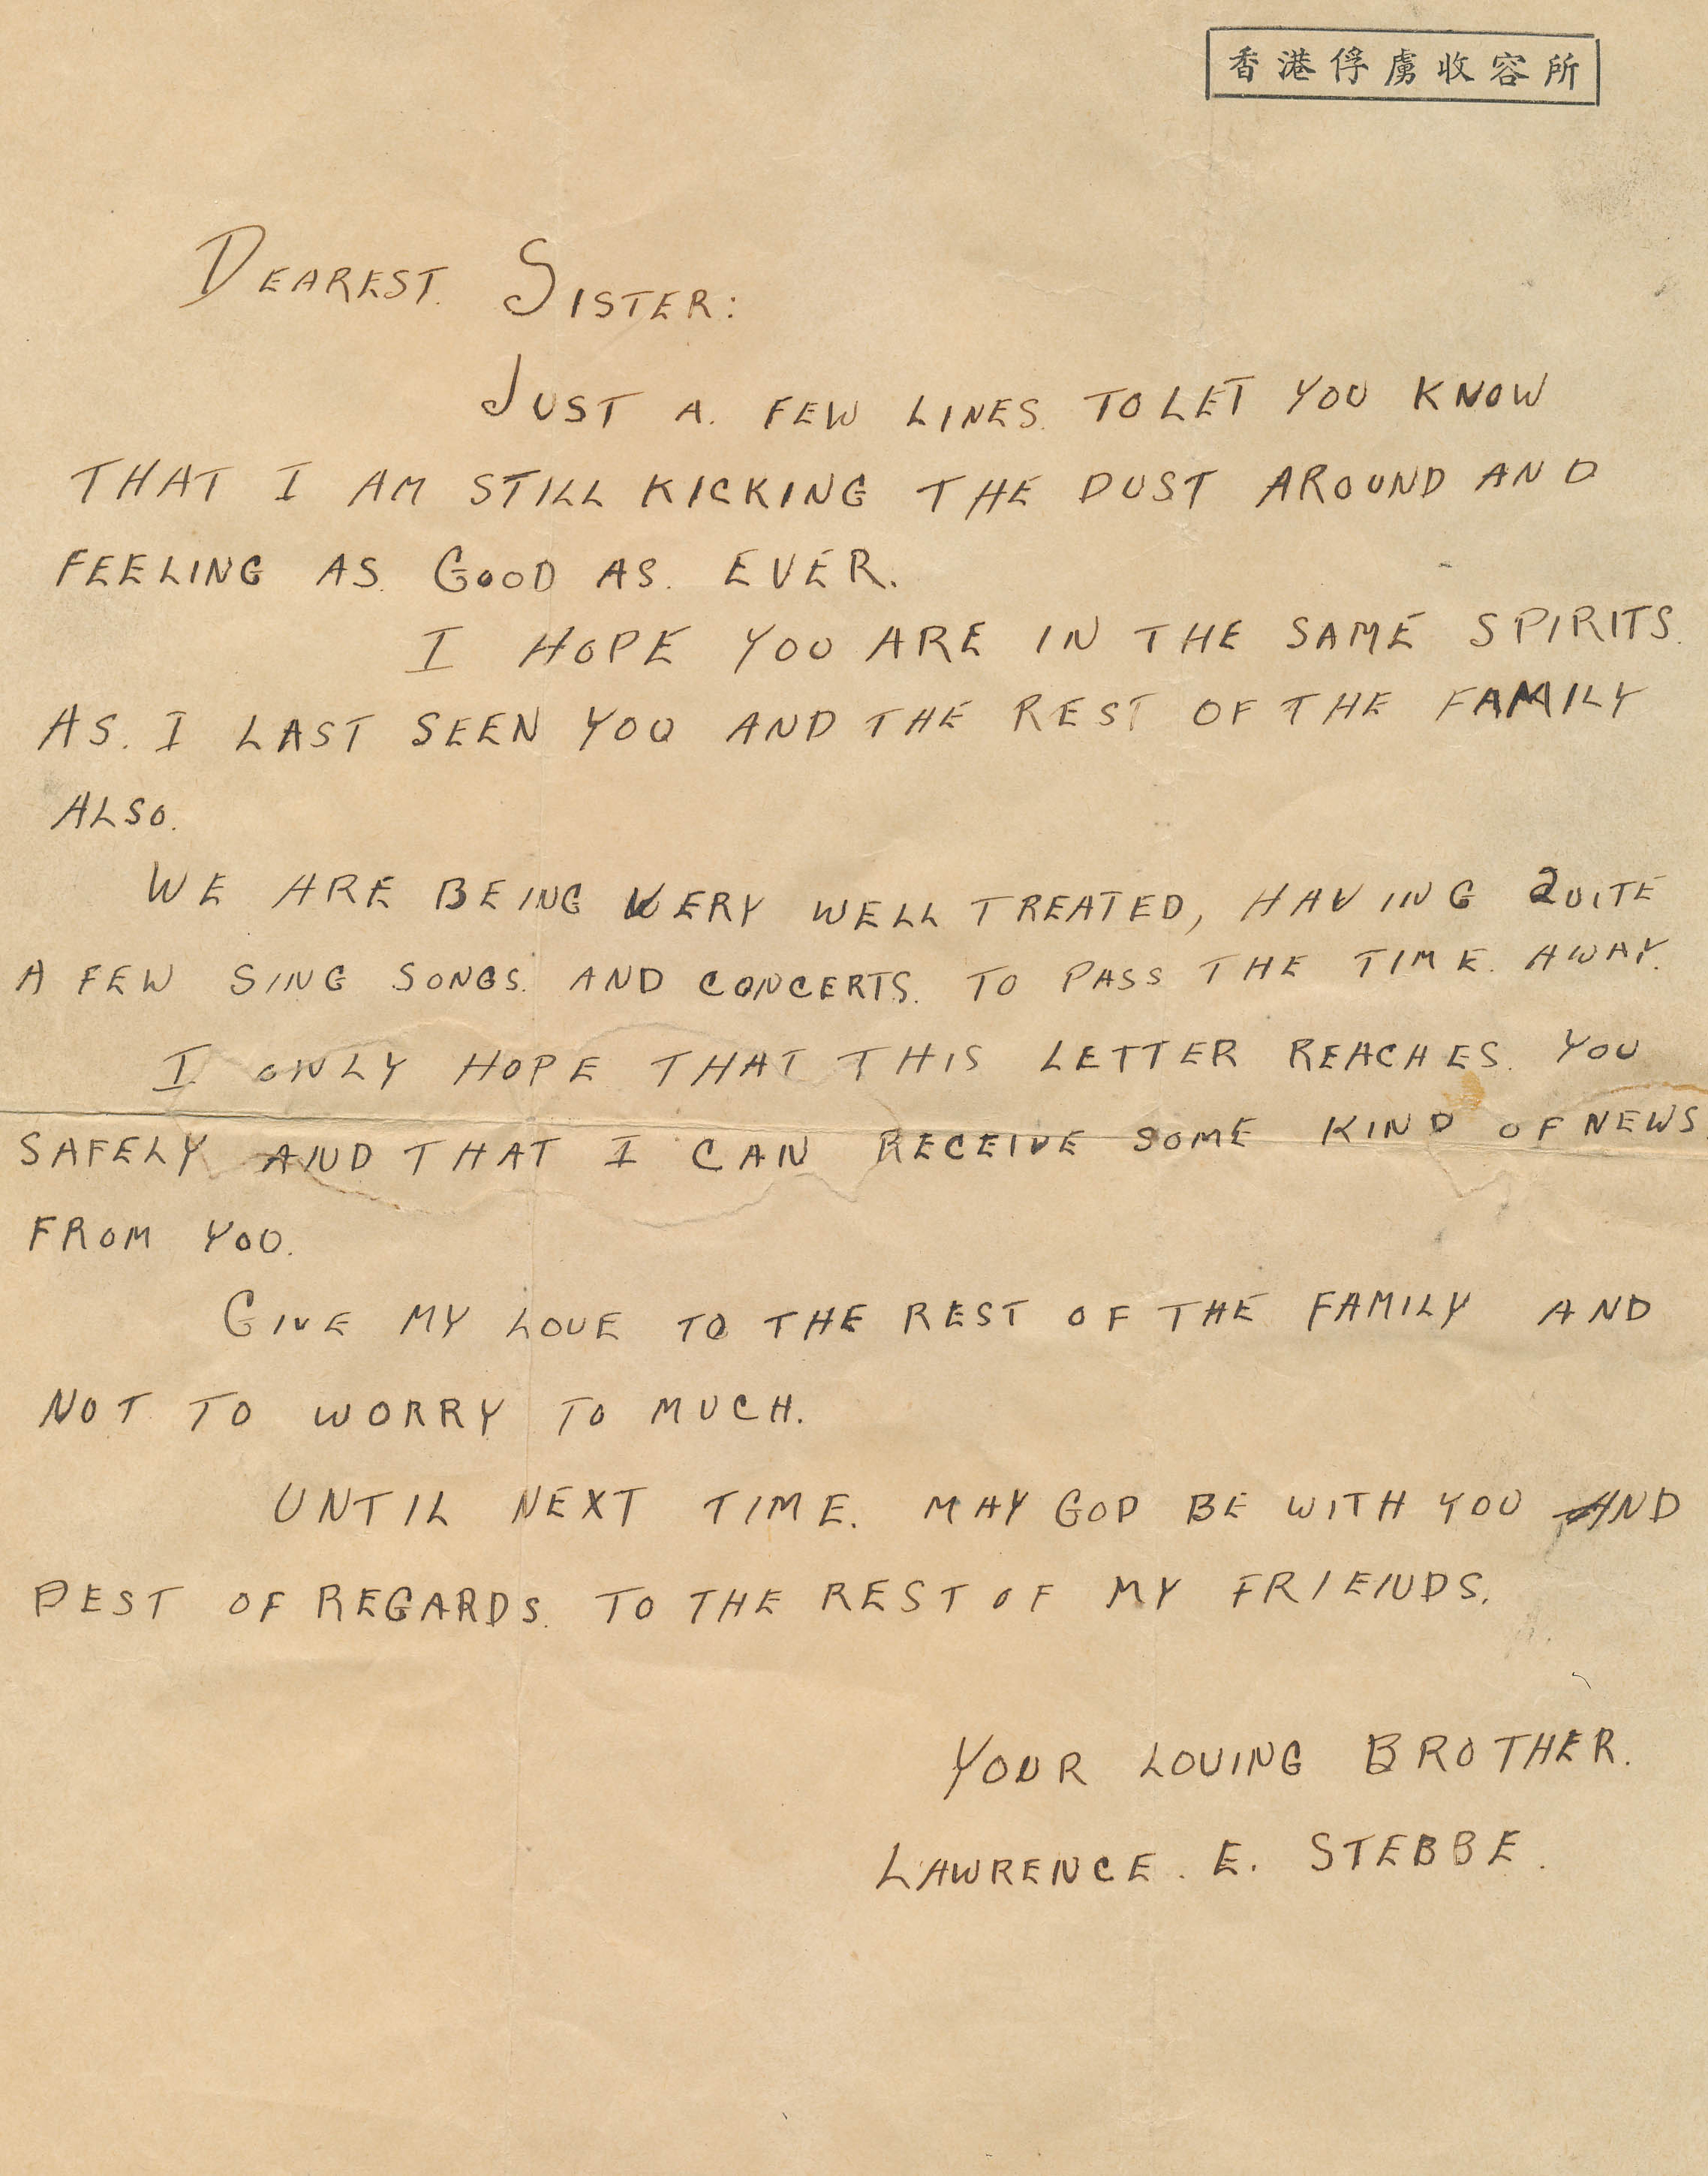 香港俘虜收容所
DEAREST. SISTER:
JUST A. FEW LINES. TO LET YOU KNOW
THAT I AM STILL KICKING THE DUST AROUND AND
FEELING AS. GOOD AS. EVER.
I HOPE YOU ARE IN THE SAME SPIRITS.
AS. I LAST SEEN YOU AND THE REST OF THE FAMILY
ALSO.
WE ARE BEING VERY WELL TREATED, HAVING QUITE
A FEW SING SONGS. AND CONCERTS. TO PASS THE TIME. AWAY.
I ONLY HOPE THAT THIS LETTER REACHES. YOU
SAFELY AND THAT I CAN RECEIVE SOME KIND OF NEWS
FROM YOU.
GIVE MY LOVE TO THE REST OF THE FAMILY AND
NOT TO WORRY TO MUCH.
UNTIL NEXT TIME. MAY GOD BE WITH YOU AND
BEST OF REGARDS. TO THE REST OF MY FRIENDS.
YOUR LOVING BROTHER.
LAWRENCE. E. STEBBE.